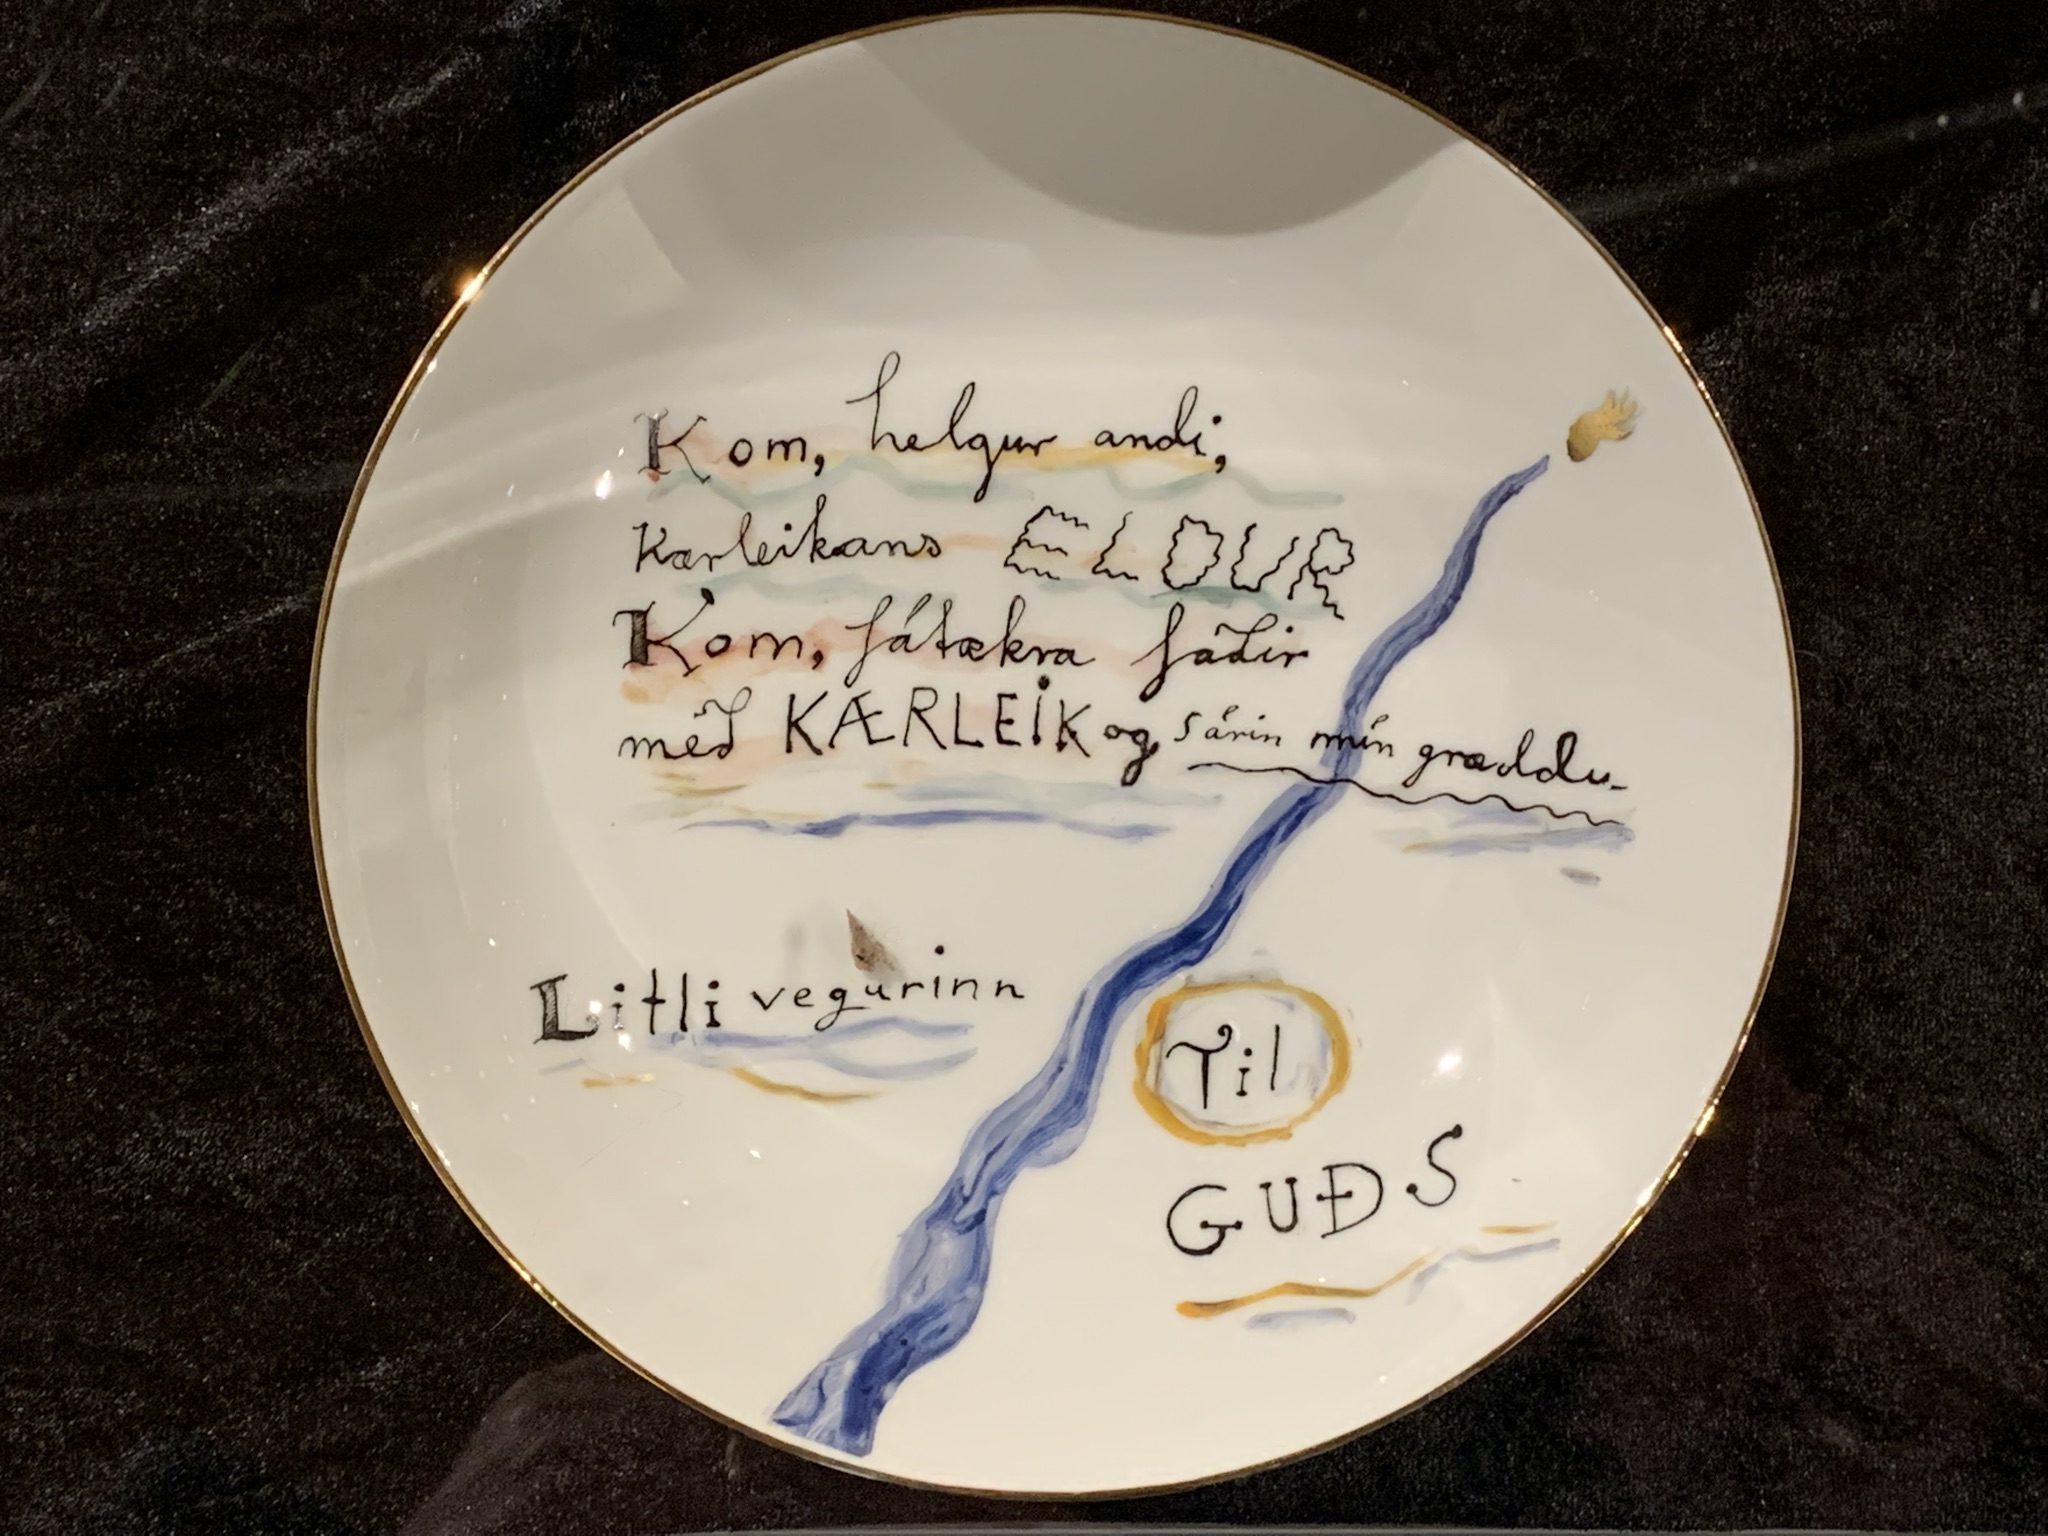 Kom, helgur andi,
Kærleikans ELDUR
Kom, fátækra faðir
með KÆRLEIK og sárin mín græddu.
Litli vegurinn
Til
GUÐS